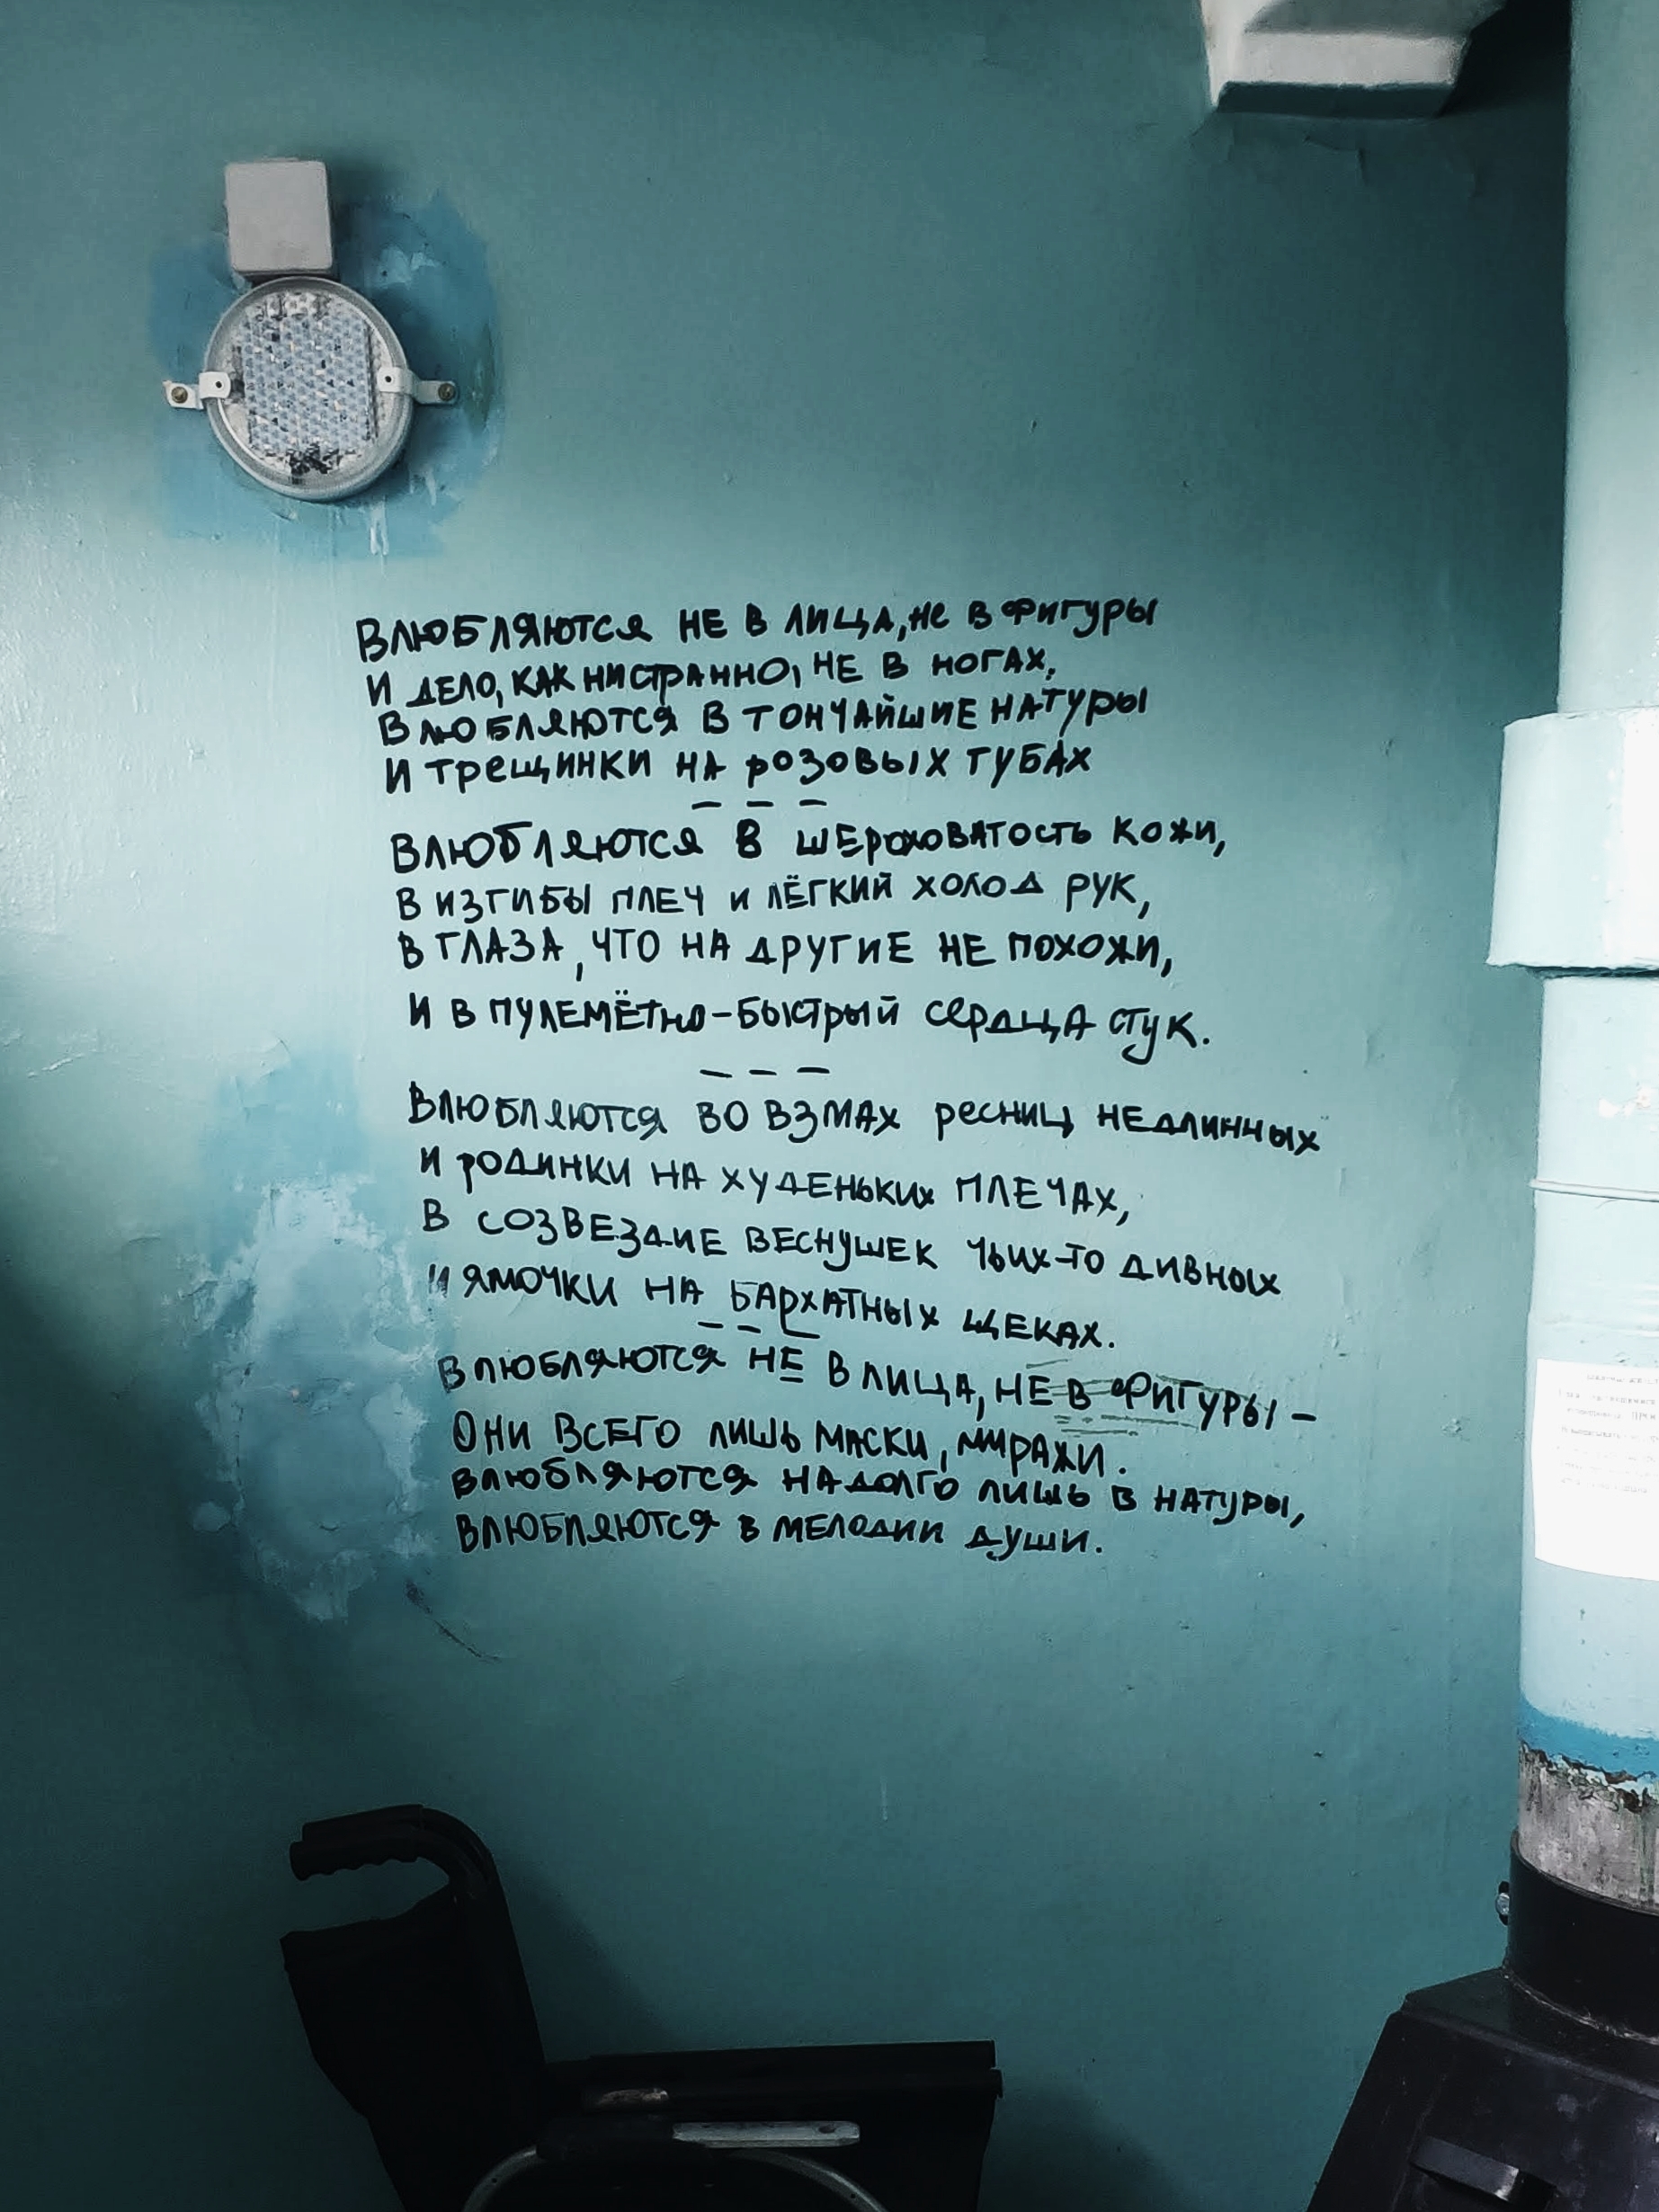 ВЛЮБЛЯЮТСЯ НЕ В ЛИЦА, НЕ В ФИГУРЫ
И ДЕЛО, КАК НИСТРАННО, НЕ В НОГАХ,
ВЛЮБЛЯЮТСЯ В ТОНЧАЙШИЕ НАТУРЫ
И ТРЕЩИНКИ НА РОЗОВЫХ ГУБАХ
– – –
ВЛЮБЛЯЮТСЯ В ШЕРОХОВАТОСТЬ КОЖИ,
В ИЗГИБЫ ПЛЕЧ И ЛЁГКИЙ ХОЛОД РУК,
В ГЛАЗА, ЧТО НА ДРУГИЕ НЕ ПОХОЖИ,
И В ПУЛЕМЁТНО-БЫСТРЫЙ СЕРДЦА СТУК.
– – –
ВЛЮБЛЯЮТСЯ ВО ВЗМАХ РЕСНИЦ НЕДЛИННЫХ
И РОДИНКИ НА ХУДЕНЬКИХ ПЛЕЧАХ,
В СОЗВЕЗДИЕ ВЕСНУШЕК ЧЬИХ-ТО ДИВНЫХ
И ЯМОЧКИ НА БАРХАТНЫХ ЩЕКАХ.
– – –
ВЛЮБЛЯЮТСЯ НЕ В ЛИЦА, НЕ В ФИГУРЫ –
ОНИ ВСЕГО ЛИШЬ МАСКИ, МИРАЖИ.
ВЛЮБЛЯЮТСЯ НАДОЛГО ЛИШЬ В НАТУРЫ,
ВЛЮБЛЯЮТСЯ В МЕЛОДИИ ДУШИ.